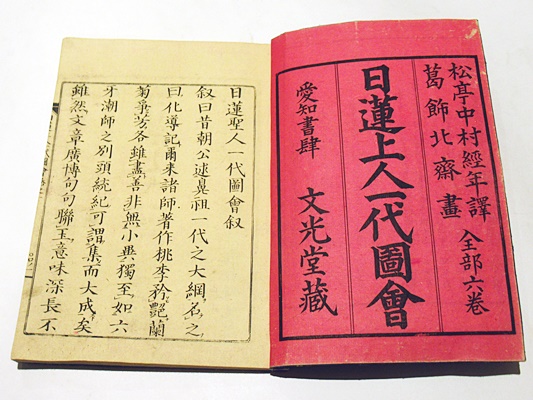 松亭中村經年譯
全部六卷
葛飾北齋畫
日蓮上人一代圖會
愛知書肆 文光堂藏
日蓮聖人一代圖會叙
叙曰昔朝公述鼻祖一代之大綱名之
曰化導記爾來諸師著作桃李矜艷蘭
菊爭芳各雖盡善非無小異獨至如六
牙潮師之別頭統紀可謂集而大成矣
雖然文章廣博句句聯玉意味深長不